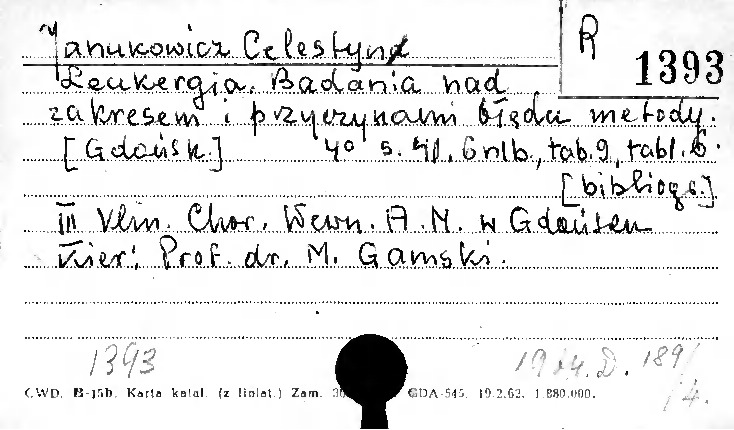 R 1393
Janukowicz Celestyna
Leukergia. Badania nad
zakresem i przyczynami błędu metody.
[Gdańsk.] 4° s. 41, 6 nlb., tab. 9, tabl. 6.
[bibliogr.]
III Klin. Chor. Wewn. A.M. w Gdańsku
Kier: Prof. dr. M. Gamski.
1393 1964. D. 189/
/4.
CWD. B-15b. Karta katal. (z liniat.) Zam. GDA-545. 19.2.62. 1.880.000.